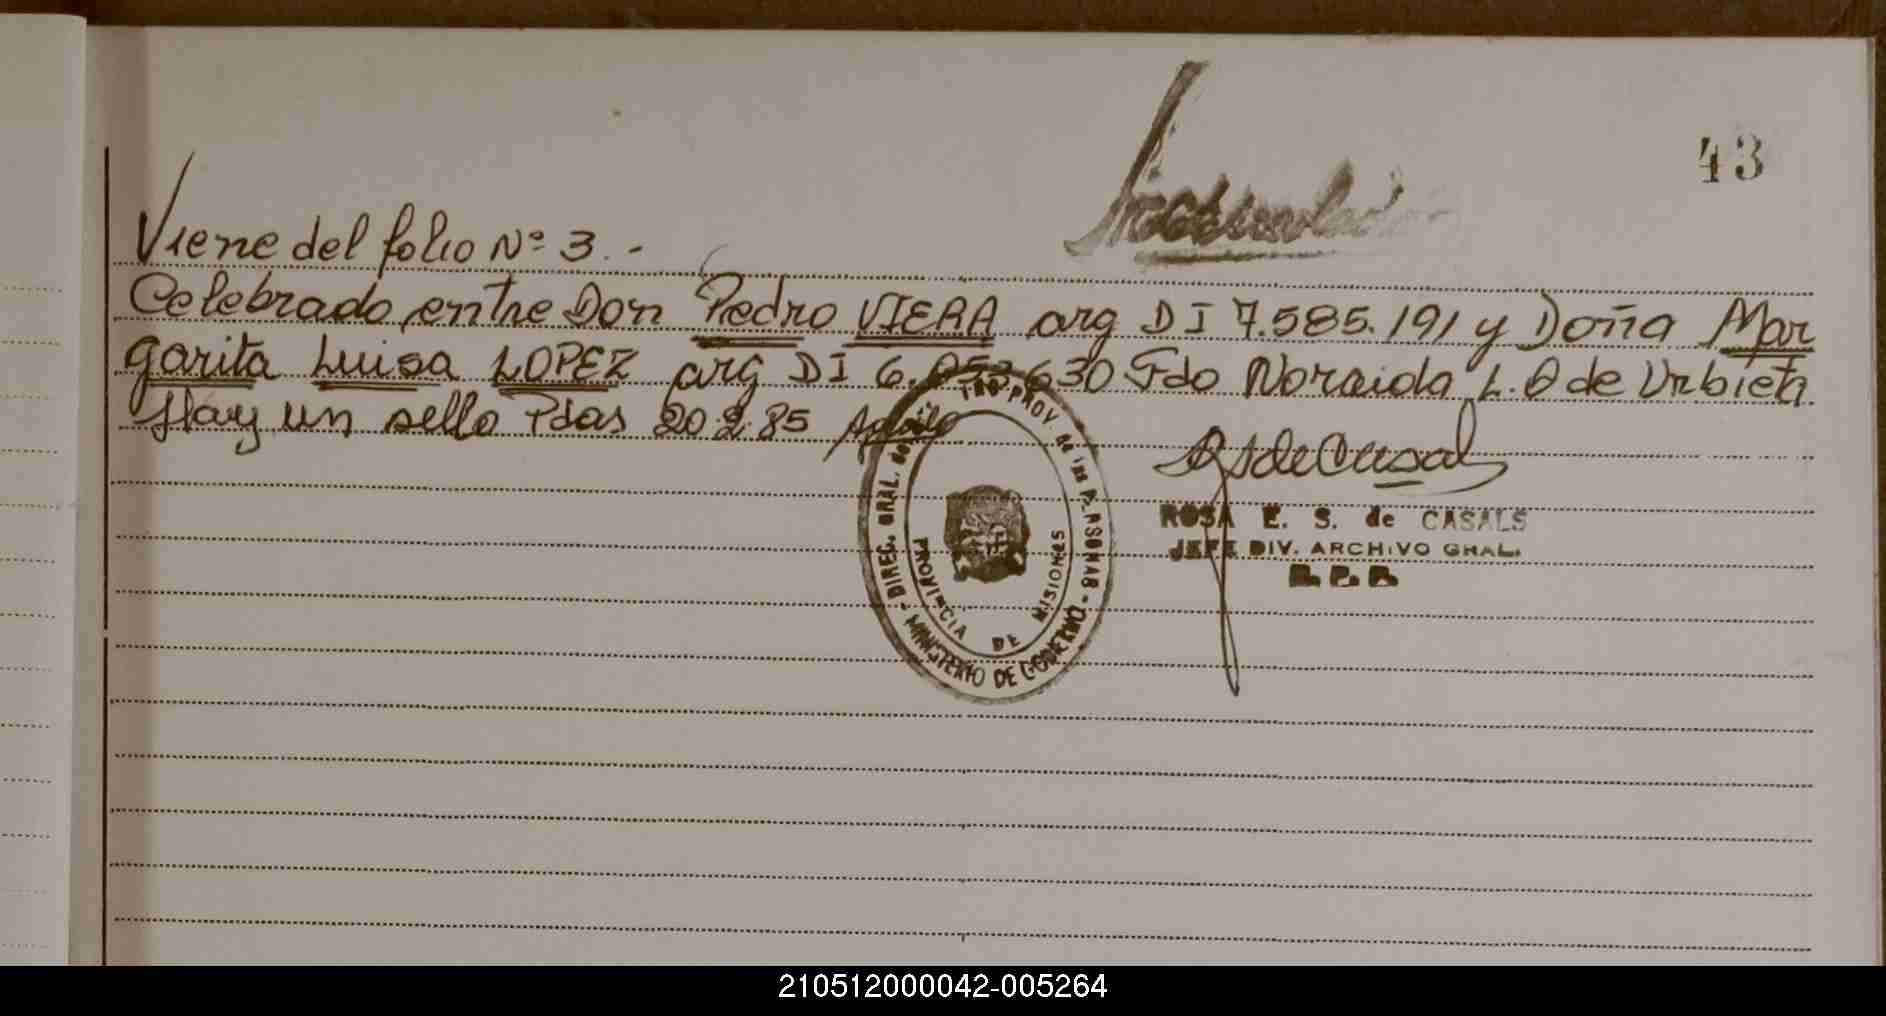 43
Viene del folio Nº 3.-
Celebrado entre Don Pedro VIERA arg DI 7.585.191 y Doña Mar
garita Luisa LOPEZ arg DI 6.853.630 Fdo Noraida L. O de Urbieta
Hay un sello Pdas 20.2.85
DIREC. GRAL. del REG. PROV de las PERSONAS - MINISTERIO DE GOBIERNO -
PROVINCIA DE MISIONES
ROSA E. S. de CASALS
JEFE DIV. ARCHIVO GRAL.
R. P. P.
210512000042-005264